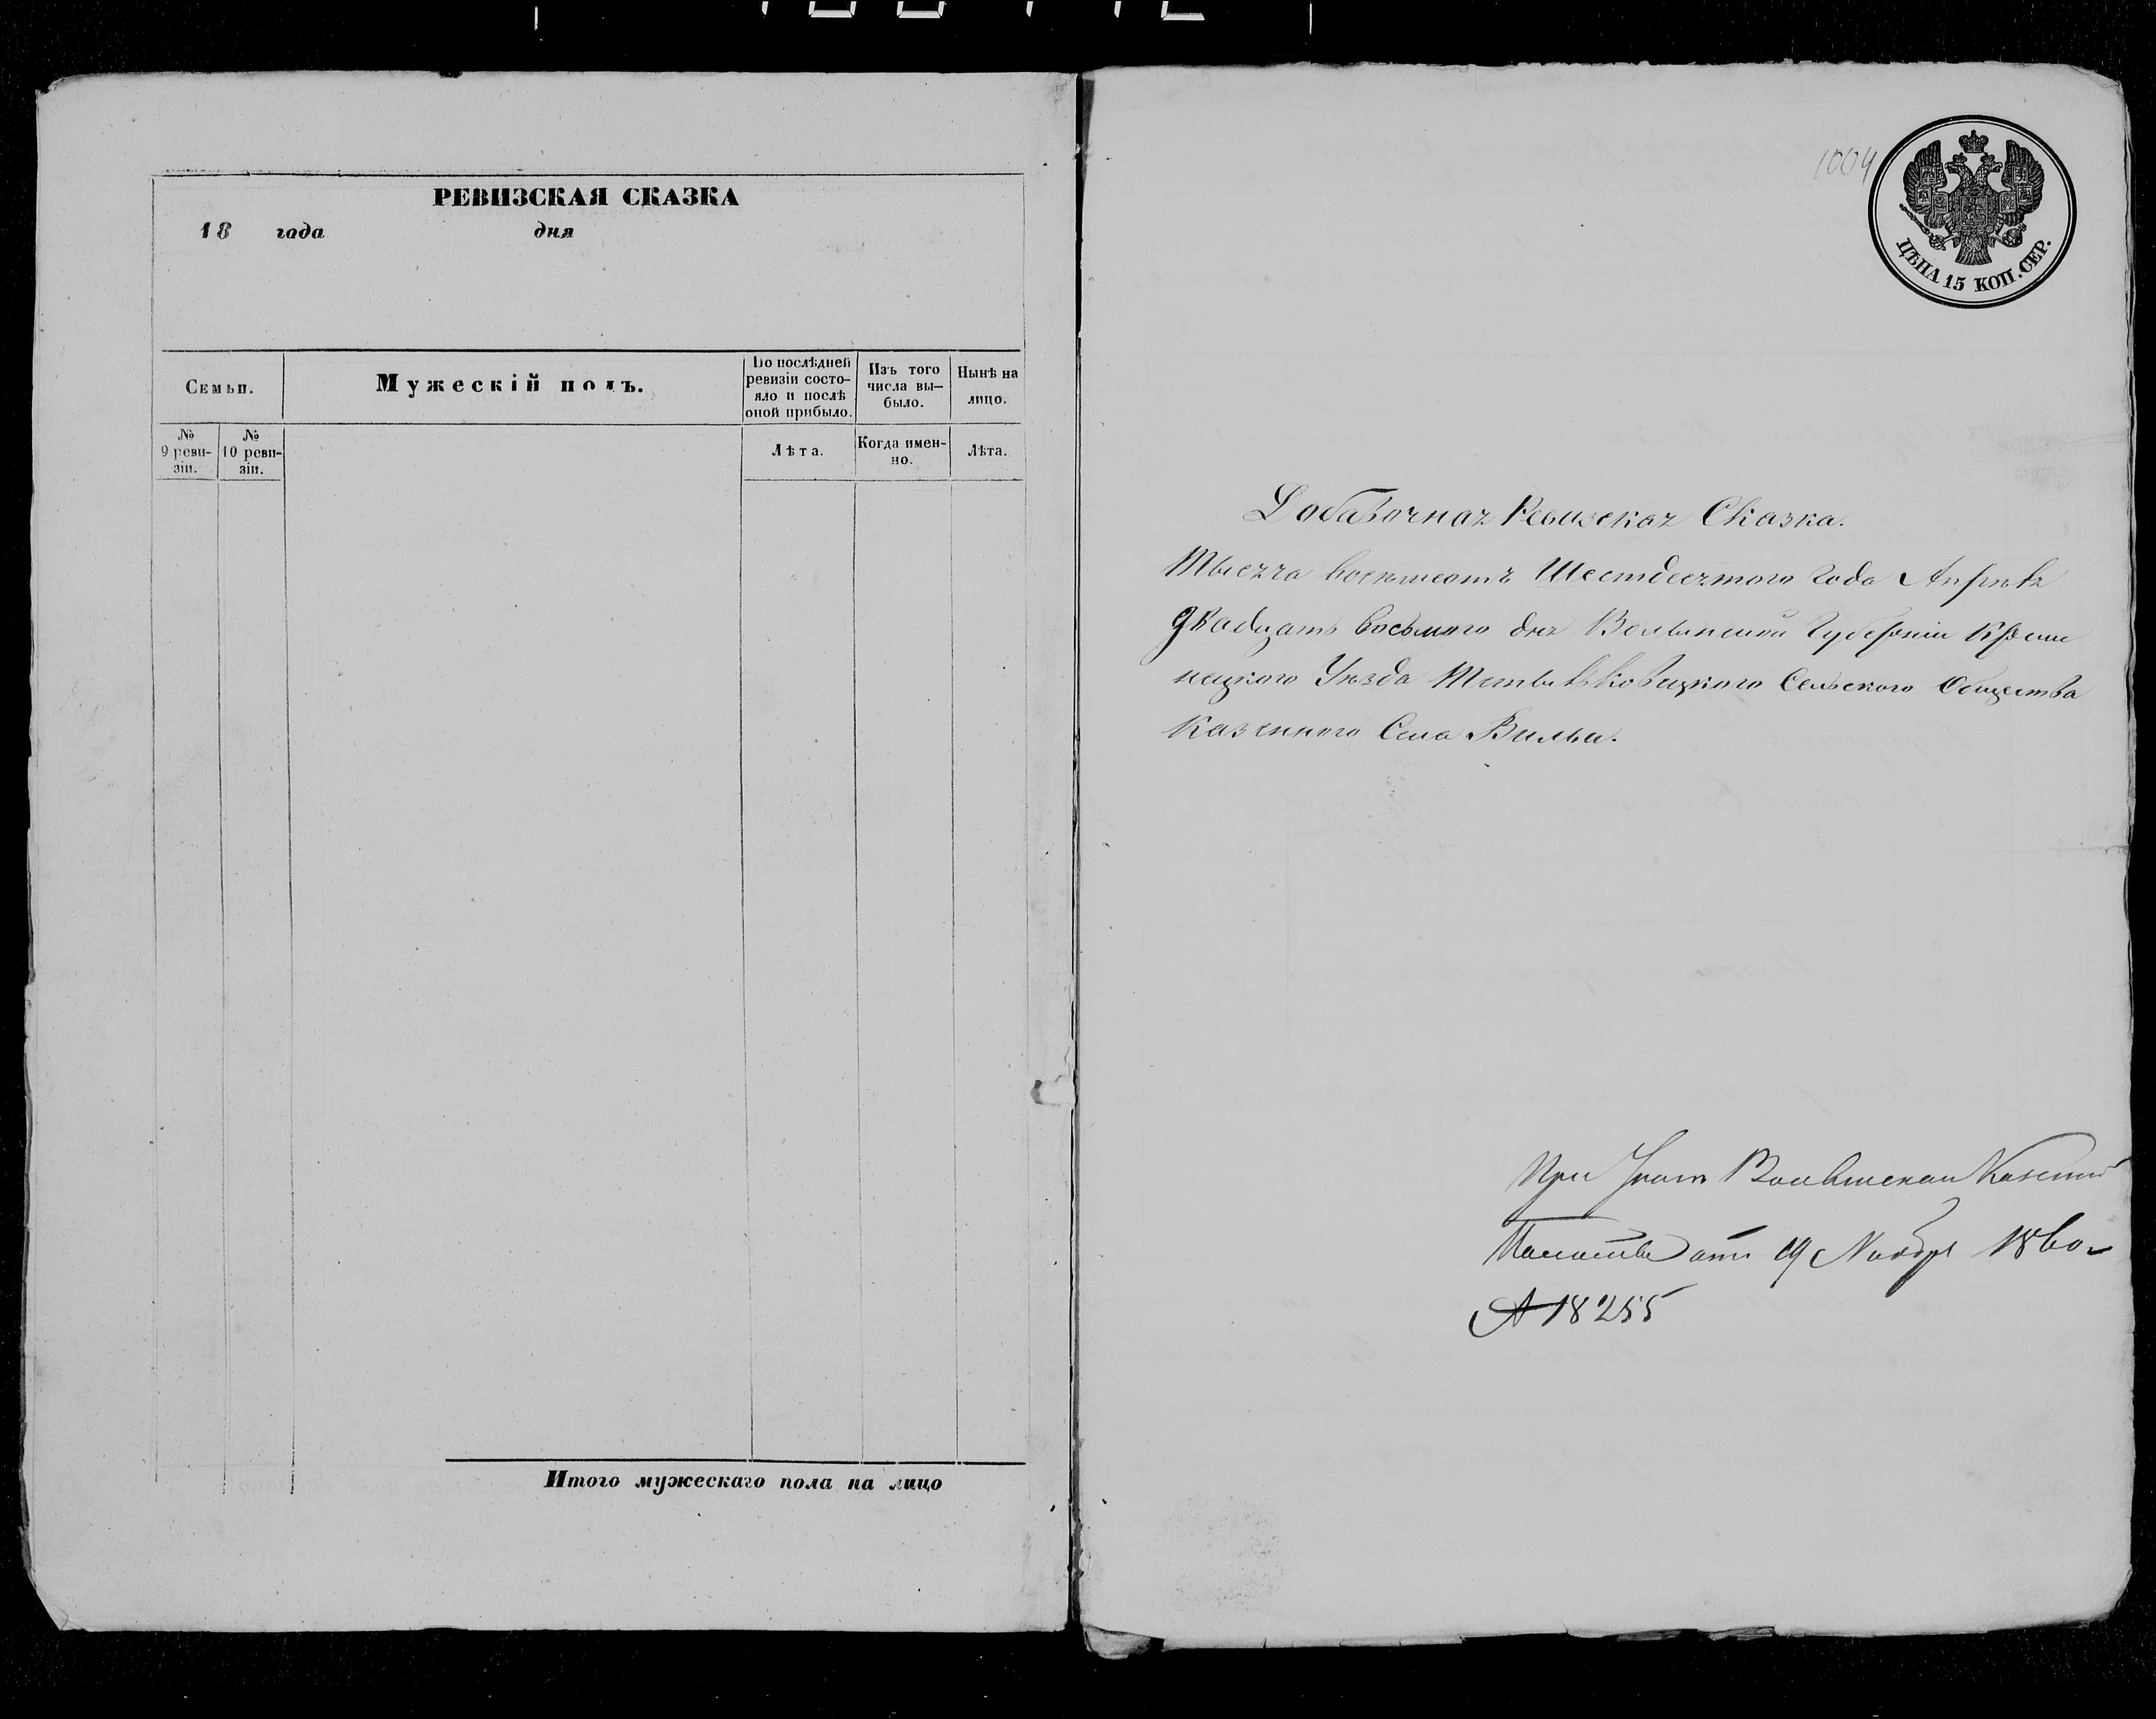 РЕВИЗСКАЯ СКАЗКА
18 года дня
Семьи.
Мужескій полъ.
По послѣдней
ревизіи состо-
яло и послѣ
оной прибыло.
Изъ того
числа вы-
было.
Нынѣ на
лицо.
№
9 реви-
зіи.
№
10 реви-
зіи.
Лѣта.
Когда имен-
но.
Лѣта.
Итого мужескаго пола на лицо
1004
ЦѢНА 15 КОП. СЕР.
Добавочная Ревизская Сказка.
Тысяча восемсотъ Шестдесятого Года Апрѣля
двадцать восьмого дня Волынской Губерніи Креме
нецкого Уѣзда Сельского Общества
Казенного Села Вильи.
При Волынской Казенной
Палаты отъ 19 Ноября 1860
№ 18255